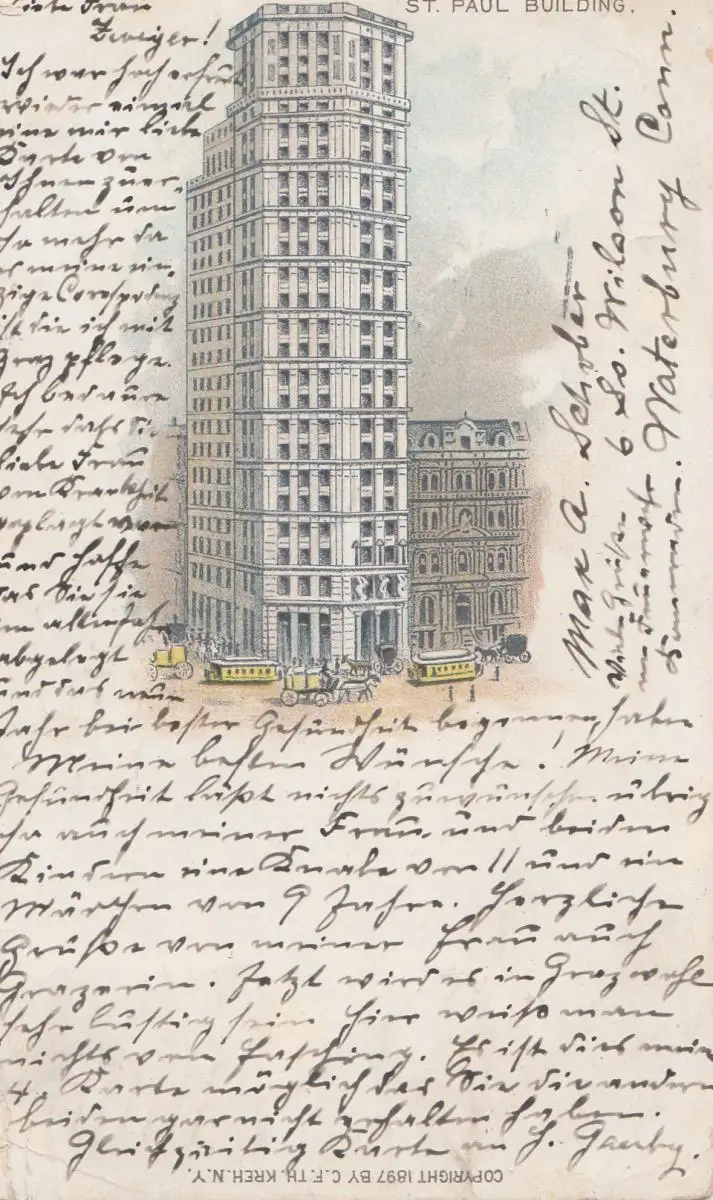 ST. PAUL BUILDING.
Liebe Frau
Zweiger!
Ich war hoch erfreut
wieder einmal
eine mir liebe
Karte von
Ihnen zu er-
halten um
so mehr da
es meine ein-
zige Correspodenz
ist die ich mit
Graz pflege.
Ich bedaure
sehr dass Sie
liebe Frau
von Krankheit
geplagt waren
und hoffe
das Sie sie
im alten Jahr
abgelegt
und das neue
Jahr bei bester Gesundheit begonnen haben
Meine besten Wünsche! Meine
Gesundheit läßt nichts zuwünschen übrig
so auch meiner Frau, und beiden
Kindern eine Knabe von 11 und ein
Mädchen von 9 Jahre. Herzliche
Grüße von meiner Frau auch
Grazerin. Jetzt wird es in Graz wohl
sehr lustig sein hier weiß man
nichts von Fasching. Es ist dies meine
4. Karte möglich das Sie die andern
beiden gar nicht erhalten haben.
Gleichzeitig Karte an H.
Max A. Schober
6 So. Wilson St.
Waterbury Conn.
Viele Grüße
COPYRIGHT 1897 BY C.F.TH. KREH. N.Y.